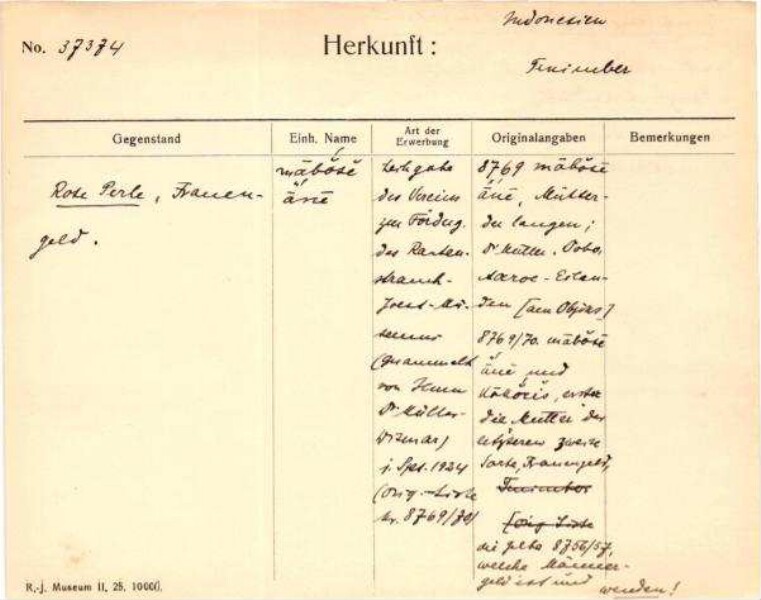 Indonesien
No. 37374 Herkunft:
Tenimber
Gegenstand
Einh. Name
Art der Erwerbung
Originalangaben
Bemerkungen
Rote Perle, Frauen-
geld.
mäbösë
änë
Leihgabe
des Vereins
zur Fördrg.
des Rauten-
strauch-
Joest-Mu-
seums
(gesammelt
von Herrn
Dr Müller-
Wismar)
j. Spt. 1924
(Orig.-Liste
Nr. 8769/70)
8769 mäbösë
änë, Mütter-
der langen;
Dr Müller.
Aaroe-Eilan-
den [am Objekt]
8769/70. mäbösë
änë und
erster
die Mutter der
letzteren zweite
Sorte, Frauengeld,
Tenimber
[Orig Liste
die gelbe 8756/57,
welche Männer-
geld ist und werden!
R.-j. Museum II, 25, 10000.